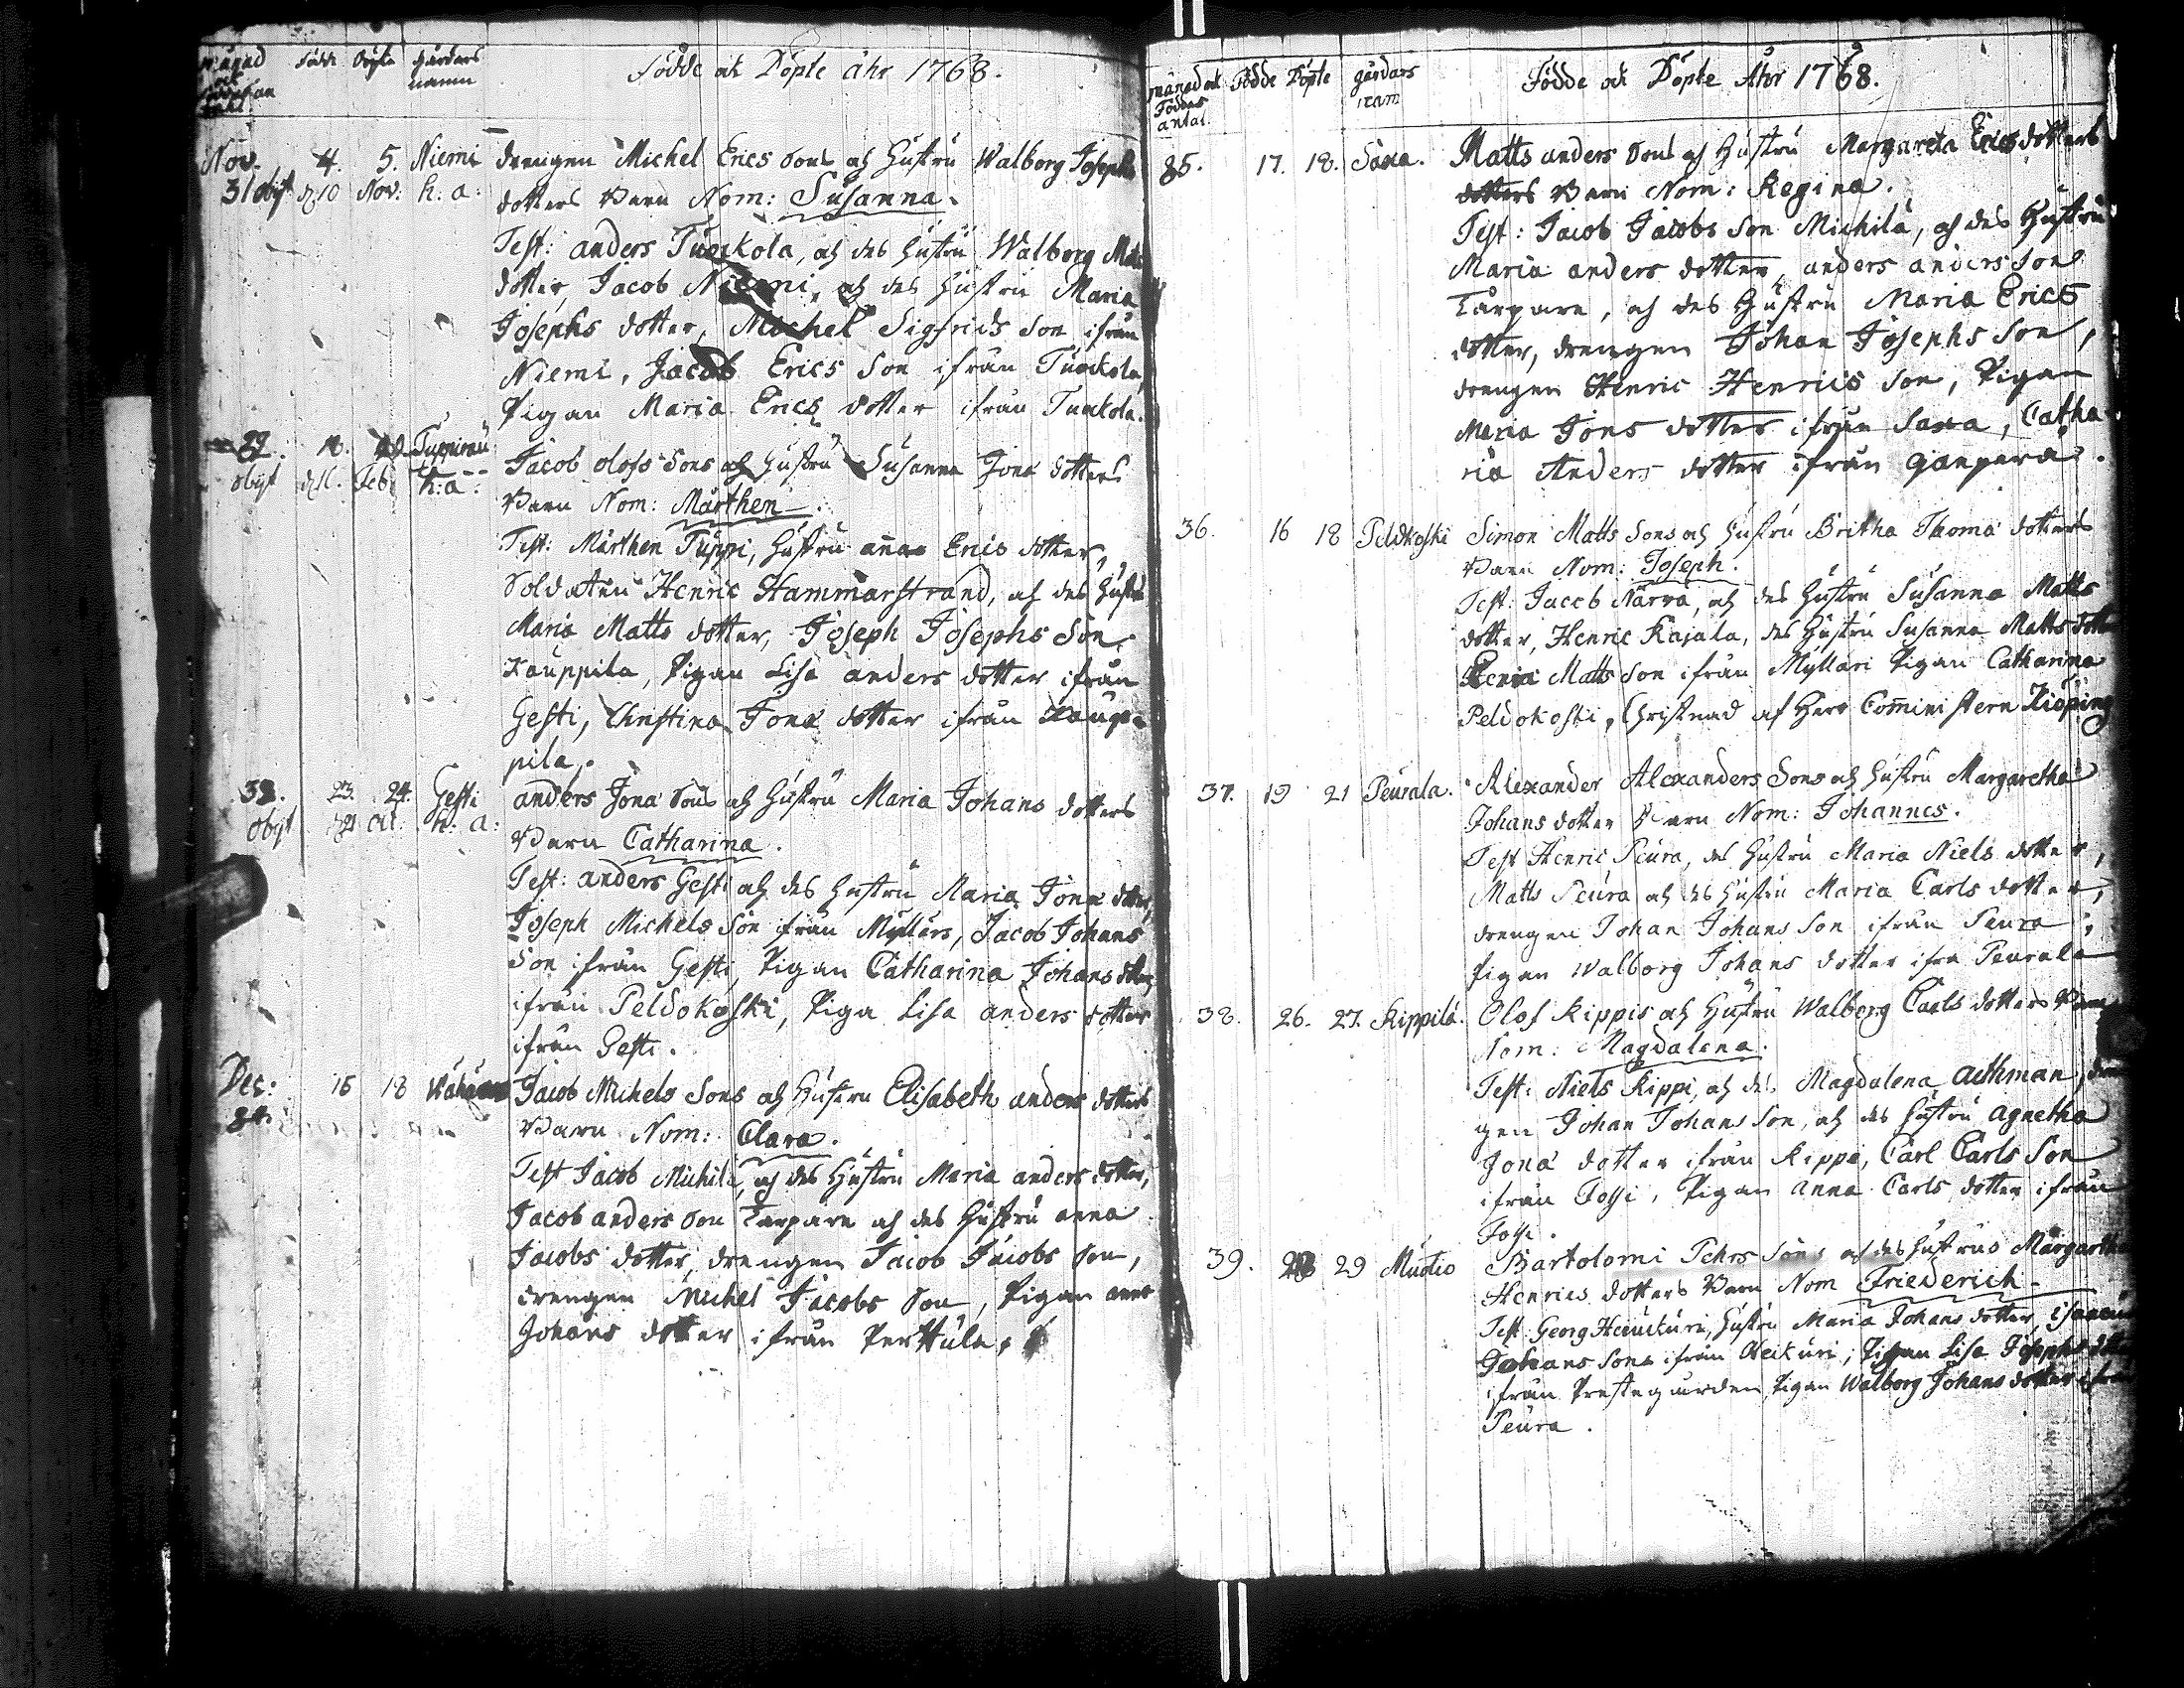 månad ok Födde Döpte gårdars namn Födde ok Döpte åhr 1768.
Nov. 4. 5. Niemi drengen Michel Erics Sons och Hustru Walborg Josephs
31 obijt d. 10 Nov: h. a: dotters Barn Nom: Susanna.
Test: anders Tuockola, och des Hustru Walborg Mats
dotter, Jacob Niemi, och des Hustru Maria
Josephs dotter, Michel Sigfrids Son ifrån
Niemi, Jacob Erics Son ifrån Tuockola,
Pigan Maria Erics dotter ifrån Tuockola.
Jacob olofs Sons och Hustru Susanna Jona dotters
obijt Feb. h: a: Barn Nom: Marthen.
Test: Marthen Tuppi, Hustru anna Erics dotter,
Soldaten Henric Hammarstrand, och des Hustru
Maria Matts dotter, Joseph Josephs Son
Kauppila, Pigan Lisa anders dotter ifrån
Gesti, Christina Jona dotter ifrån Kaup=
pila.
23. 24. Gesti anders Jona Sons och Hustru Maria Johans dotters
obijt h: a: Barn Catharina.
Test: anders Gesti och des Hustru Maria Jona dotter,
Joseph Michels Son ifrån Myllärs, Jacob Johans
Son ifrån Gesti, Pigan Catharina Johans dotter
ifrån Peldokoski, Piga Lisa anders dotter
ifrån Gesti.
Dec: 18 Jacob Michels Sons och Hustru Elisabeth anders dotters
34. Barn Nom: Clara.
Test Jacob Michilä, och des Hustru Maria anders dotter,
Jacob anders Son Tarpare och des Hustru anna
Jacobs dotter, drengen Jacob Jacobs Son,
drengen Michel Jacobs Son, Pigan anna
Johans dotter ifrån Perttula.
månad ok Föddas antal. Födde Döpte gårdars nam Födde ok Döpte Åhr 1768.
35. 17. 18. Saxa. Matts anders Sons och Hustru Margareta Erics dotters
dotters Barn Nom: Regina.
Test: Jacob Jacobs Son Michilä, och des Hustru
Maria anders dotter, anders anders Son
Tarpare, och des Hustru Maria Erics
dotter, drengen Johan Josephs Son,
drengen Henric Henrics Son, Pigan
Maria Jöns dotter ifrån Saxa, Catha
ria Anders dotter ifrån
36. 16 18 Peldkoski Simon Matts Sons och Hustru Britha Thoma dotters
Barn Nom: Joseph.
Test: Jacob Närvä, och des Hustru Susanna Matts
dotter, Henric Kajala, des Hustru Susanna Matts dotter
Matts Son ifrån Myllari Pigan Catharina
Peldokoski, Christnad af Herr Comministern Kiöping
37. 19 21 Peurala. Alexander Alexanders Sons och Hustru Margaretha
Johans dotter Barn Nom: Johannes.
Test Henric Peura, des Hustru Maria Niels dotter,
Matts Peura och des Hustru Maria Carls dotter,
drengen Johan Johans Son ifrån Peura,
Pigan Walborg Johans dotter ifrå Peurala
38. 26. 27. Kippilä. Olof Kippis och Hustru Walborg Carls dotters Barn
Nom: Magdalena.
Test: Niels Kippi, och des Magdalena Acthman, dren
gen Johan Johans Son, och des Hustru Agnetha
Jona dotter ifrån Kippi, Carl Carls Son
ifrån Tossi, Pigan Anna Carls dotter ifrån
Tossi.
39. 28 29 Mustio Bartolomi Pehrs Sons och des Hustrus Margaretha
Henrics dotters Barn Nom Friederich.
Test: Georg Hauckuri, Hustru Maria Johans dotter,
Johans Sons ifrån Pigan Lisa Josephs dotter
ifrån Prestegården, Pigan Walborg Johans dotter ifrån
Peura.